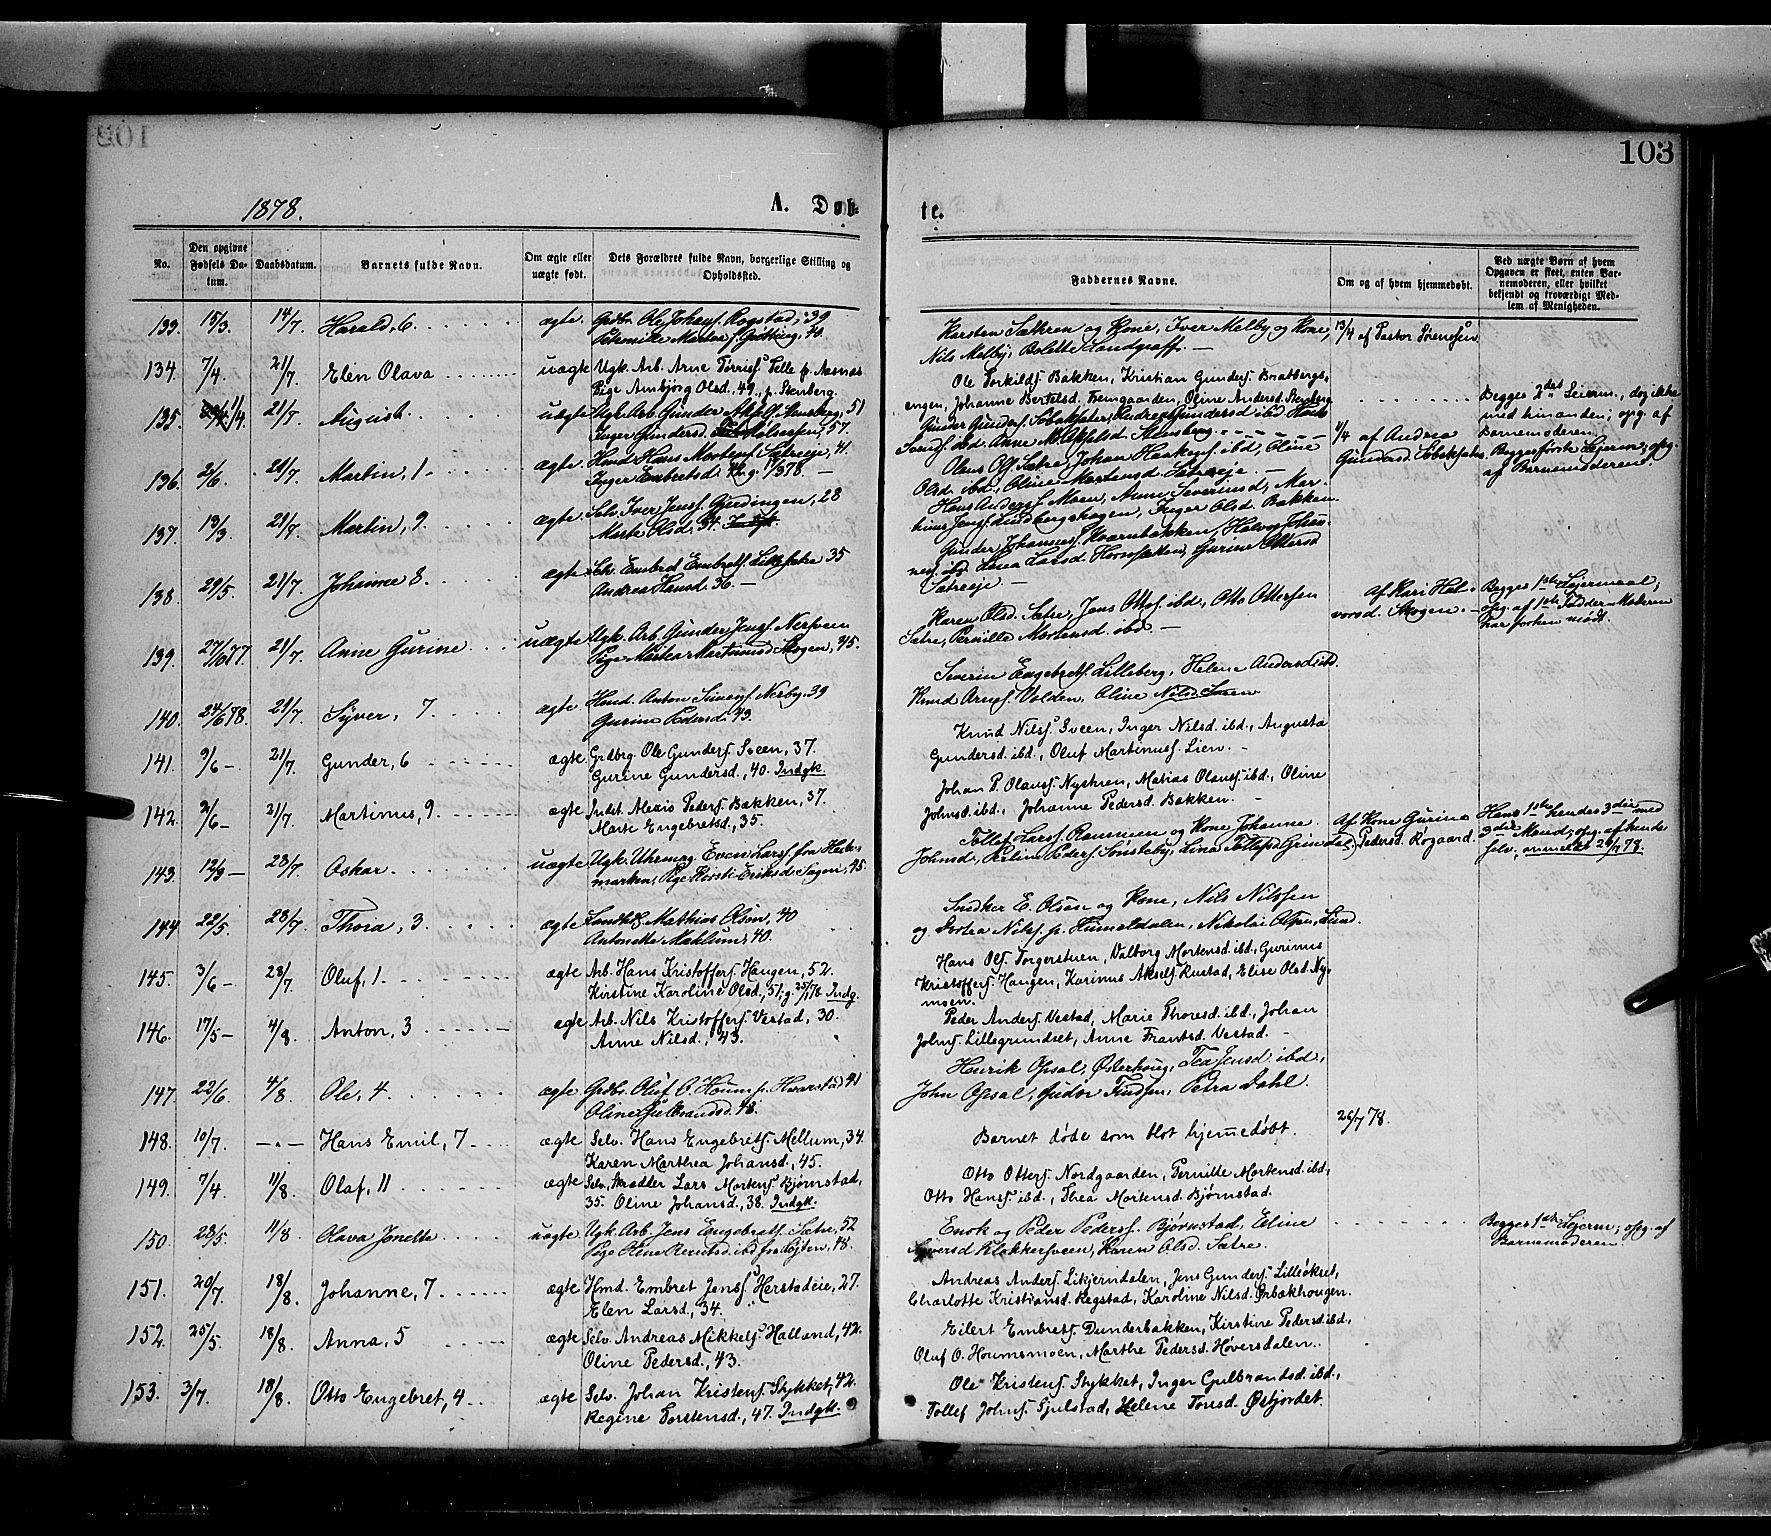 103
1878.
A. Døb-
te.
No.
Den opgivne Fødsels Datum.
Daabsdatum.
Barnets fulde Navn.
Om ægte eller uægte født.
Dets Forældres fulde Navn, borgerlige Stilling og Opholdsted.
Faddernes Navne.
Om og af hvem hjemmedøbt.
Ved uægte Børn af hvem Opgaven er skeet, enten Barnemoderen, eller hvilket bekjendt og troværdigt Medlem af Menigheden.
133. 15/3. 14/7. Harald, 6 ægte. Grdbr. Ole Johans. Rogstad, 39
Karsten Sætren og Kone, Iver Melby og Kone, 13/4 af Pastor Sørenssen
Nils Melby, Bolette Landgraff. —
134. 7/4. 21/7. Elen Olava uægte Ugk. Arb. Arne
Pige Ambjørg Olsd. 49, p. Stenberg.
Ole Torkilds. Bakken, Kristian Gunders. Bratbergs-
engen, Johanne Bertelsd. Fremgaarden, Oline Andersd. Stenberg
Begges 2det Leierm., dog ikke
med hinanden; opg. af
Barnemoderen.
135. 11/4. 21/7. August uægte Ugk. Arb. Gunder Stensberg, 51
Inger Gundersd. 57.
11/4 af Andrea
Gundersd.
Begges første Lejerm; opg.
af Barnemoderen.
136. 2/6. 21/7. Martin, 1 ægte. Hmd Hans Mortens. Sætreeje, 41.
Inger Embretsd.
Olaus Ols. Sætre, Johan Haakens. ibd, Oline
Olsd. ibd., Oline Mortensd. Sætreeje. —
137. 13/3. 21/7. Martin, 9. ægte. Iver Jens. Gjerdingen, 28
Marte Olsd. 34.
Hans Anders. Moen, Anne Severinsd., Mar-
tinus Jens. Lindbergshagen, Inger Olsd. Bakken
138. 29/5. 21/7. Johanne 8. ægte Embret Embrets. 35
Andrea Hansd. 36 —
Gunder Johannes. Kvernbakken, Halvor Johan-
nes. ibd. Lina Larsd. Gurine Ottersd
Sætreeje —
139. 27/10 77. 21/7. Anne Gurine uægte Ugk. Arb. Gunder Jens. Nersveen
Pige Martea Martinusd. Skogen, 45.
Karen Olsd. Sætre, Jens Ottos. ibd., Otto Ottersen
Sætre, Pernille Mortensd. ibd. —
Af Kari Hal-
vorsd. Skogen. —
Begges 1ste Lejermaal;
opg. af 1ste Fadder. Moderen
har forhen mødt.
140. 24/6 78. 21/7. Syver, 7 ægte. Hmd. Anton Simens. Nerby, 39
Gurine Pedersd. 43.
Severin Engebrets. Lilleberg, Helene Andersd. ibd.
Knud Arnes. Volden, Oline Nilsd. Sveen
141. 9/6 — 21/7. Gunder, 6 ægte Grdbrg Ole Gunders. Sveen, 37.
Gurine Gundersd., 40. Indgk.
Knud Nilss Sveen, Inger Nilsd. ibd., Augusta
Gundersd. ibd., Oluf Martinuss. Lien. —
142. 2/6 — 21/7. Martinus, 9 ægte Indst. Alexis Peders. Bakken, 37.
Marte Engebretsd., 35.
Johan P. Olauss. Nystuen, Matias Olauss. ibd., Oline
Johnsd. ibd., Johanne Pedersd. Bakken. —
143. 28/7. Oskar uægte Ugk. Uhrmag. Even Larss. fra Hede-
marken, Pige Kirsti Eriksd. Sagen, 45.
Tollef Larss. Rammen og Kone Johanne
Johnsd., Peder Peders. Sønsteby, Lina Tollefsd. Grindal,
Af Kone Gurine
Pedersd. Røgaard.
Hans 1ste, hendes 3die med
3die Mand; opg. af hende
selv,
144 22/5. 28/7. Thora, 3 ægte Mathias Olsen, 40
Antonette Mæhlum, 40.
Snedker E. Olsen og Kone, Nils Nilssen
og Dortea Nils. p. Hummeldalen, Nikolai Olsen, Lund.
145. 3/6 — 28/7. Oluf, 1. ægte Arb. Hans Kristoffers. Haugen, 52.
Kirstine Karoline Olsd., 51; g. 25/1 78. Indg.
Hans Ols. Torgerstuen, Valborg Mortensd. ibd., Gurinus
Kristoffers. Haugen, Karinus Aksels. Rustad, Elise Olsd. Ny-
moen.
146. 17/5 — 4/8. Anton, 3 ægte Arb. Nils Kristoffers. Vestad, 30.
Anne Nilsd., 43.
Peder Anders. Vestad, Marie Thoresd. ibd., Johan
Johns. Lillegrundset, Anne Frantsd. Vestad. —
147. 22/6. 4/8. Ole, 4. ægte. Grdbr. Oluf O. Houm p. Hvarstad 41
Oline Gulbrandsd. 43.
Henrik Opsal, Østerhoug, Tea Jensd. ibd.,
John Opsal, Gudor Petra Dahl.
148. 10/7. — „ — Hans Emil, 7 ægte Selv. Hans Engebrets. Mellum, 34.
Karen Marthea Johansd., 45.
Barnet døde som blot hjemmedøbt. 26/7 78.
149. 7/4. 11/8. Olaf, 11 ægte Selv. Skrædder Lars Mortens. Bjørnstad,
35. Oline Johansd., 38. Indgk.
Otto Otters. Nordgaarden, Pernille Mortensd. ibd.,
Otto Hanss. ibd., Thea Mortensd. Bjørnstad.
150. 28/5. 11/8. Olava Jonette uægte Ugk. Arb. Jens Engebrets. Sætre, 52
Pige Oline Berntsd. ibd fra Løjten, 48.
Enok og Peder Peders. Bjørnstad, Eline
Siversd Klokkersveen, Karen Olsd. Sætre.
Begges 1ste Lejerm; opg. af
Barnemoderen.
151. 20/7. 18/8. Johanne, 7 ægte Hmd. Embret Jenss. Herstadeie, 27.
Elen Larsd., 34.
Andreas Anders. Likjerndalen, Jens Gunders. Lilleøkset,
Charlotte Kristiansd. Regstad, Karoline Nilsd. Ørbakhougen.
152. 25/5. 18/8. Anna, 5 ægte Selv. Andreas Mikkels. Halland, 42.
Oline Pedersd., 43.
Eilert Embrets. Dunderbakken, Kirstine Pedersd. ibd.,
Oluf O. Houmsmoen, Marthe Pedersd. Høversdalen.
153. 3/7. 18/8. Otto Engebret, 4 ægte Selv. Johan Kristens. Stykket, 42.
Regine Torstensd., 47. Indgk.
Ole Kristens. Stykket, Inger Gulbrandsd. ibd.,
Tollef Johns. Tjelstad, Helene Tonsd. Østjordet.